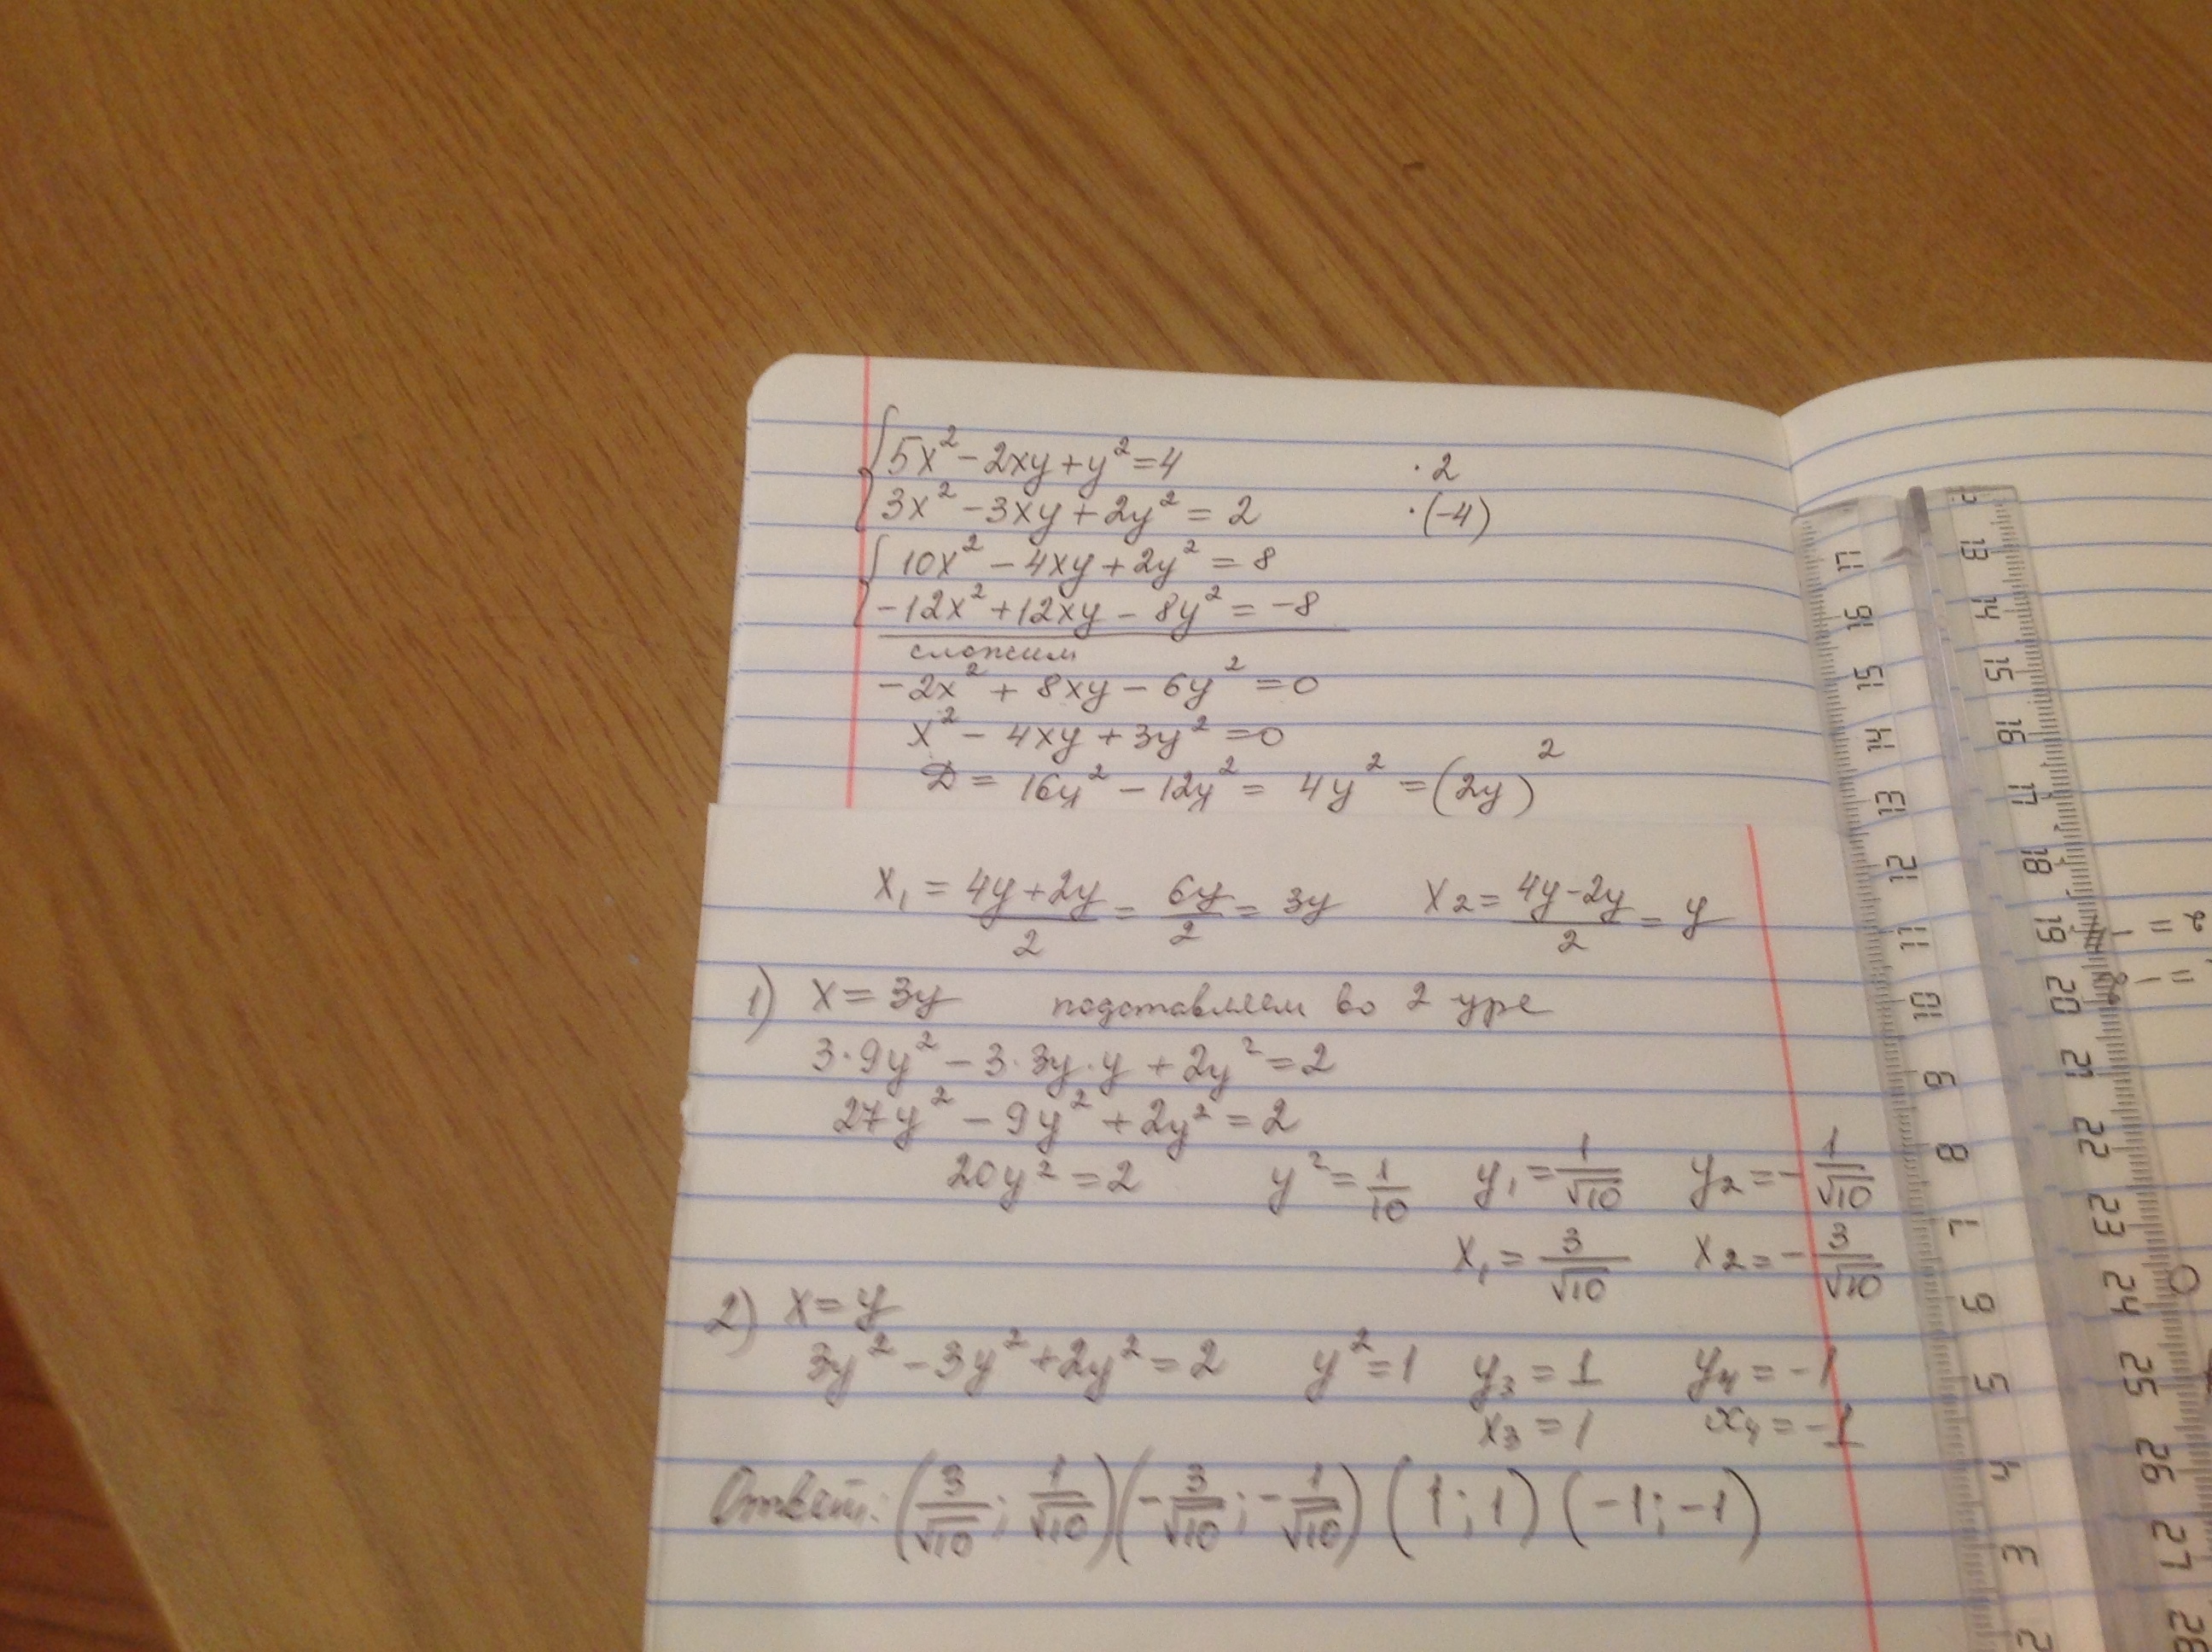 5x² - 2xy + y² = 4 · 2
3x² - 3xy + 2y² = 2 · (-4)
10x² - 4xy + 2y² = 8
-12x² + 12xy - 8y² = -8
сложим
-2x² + 8xy - 6y² = 0
x² - 4xy + 3y² = 0
D = 16y² - 12y² = 4y² = (2y)²
x₁ = (4y+2y)/2 = 6y/2 = 3y x₂ = (4y-2y)/2 = y
1) x = 3y подставляем во 2 ур-е
3·9y² - 3·3y·y + 2y² = 2
27y² - 9y² + 2y² = 2
20y² = 2 y² = 1/10 y₁ = 1/√10 y₂ = -1/√10
x₁ = 3/√10 x₂ = -3/√10
2) x = y
3y² - 3y² + 2y² = 2 y² = 1 y₃ = 1 y₄ = -1
x₃ = 1 x₄ = -1
Ответ: (3/√10; 1/√10) (-3/√10; -1/√10) (1; 1) (-1; -1)
17 16 15 14 13 12 11 10 9 8 7 6 5 4 3 2
13 14 15 16 17 18 19 20 21 22 23 24 25 26 27 28